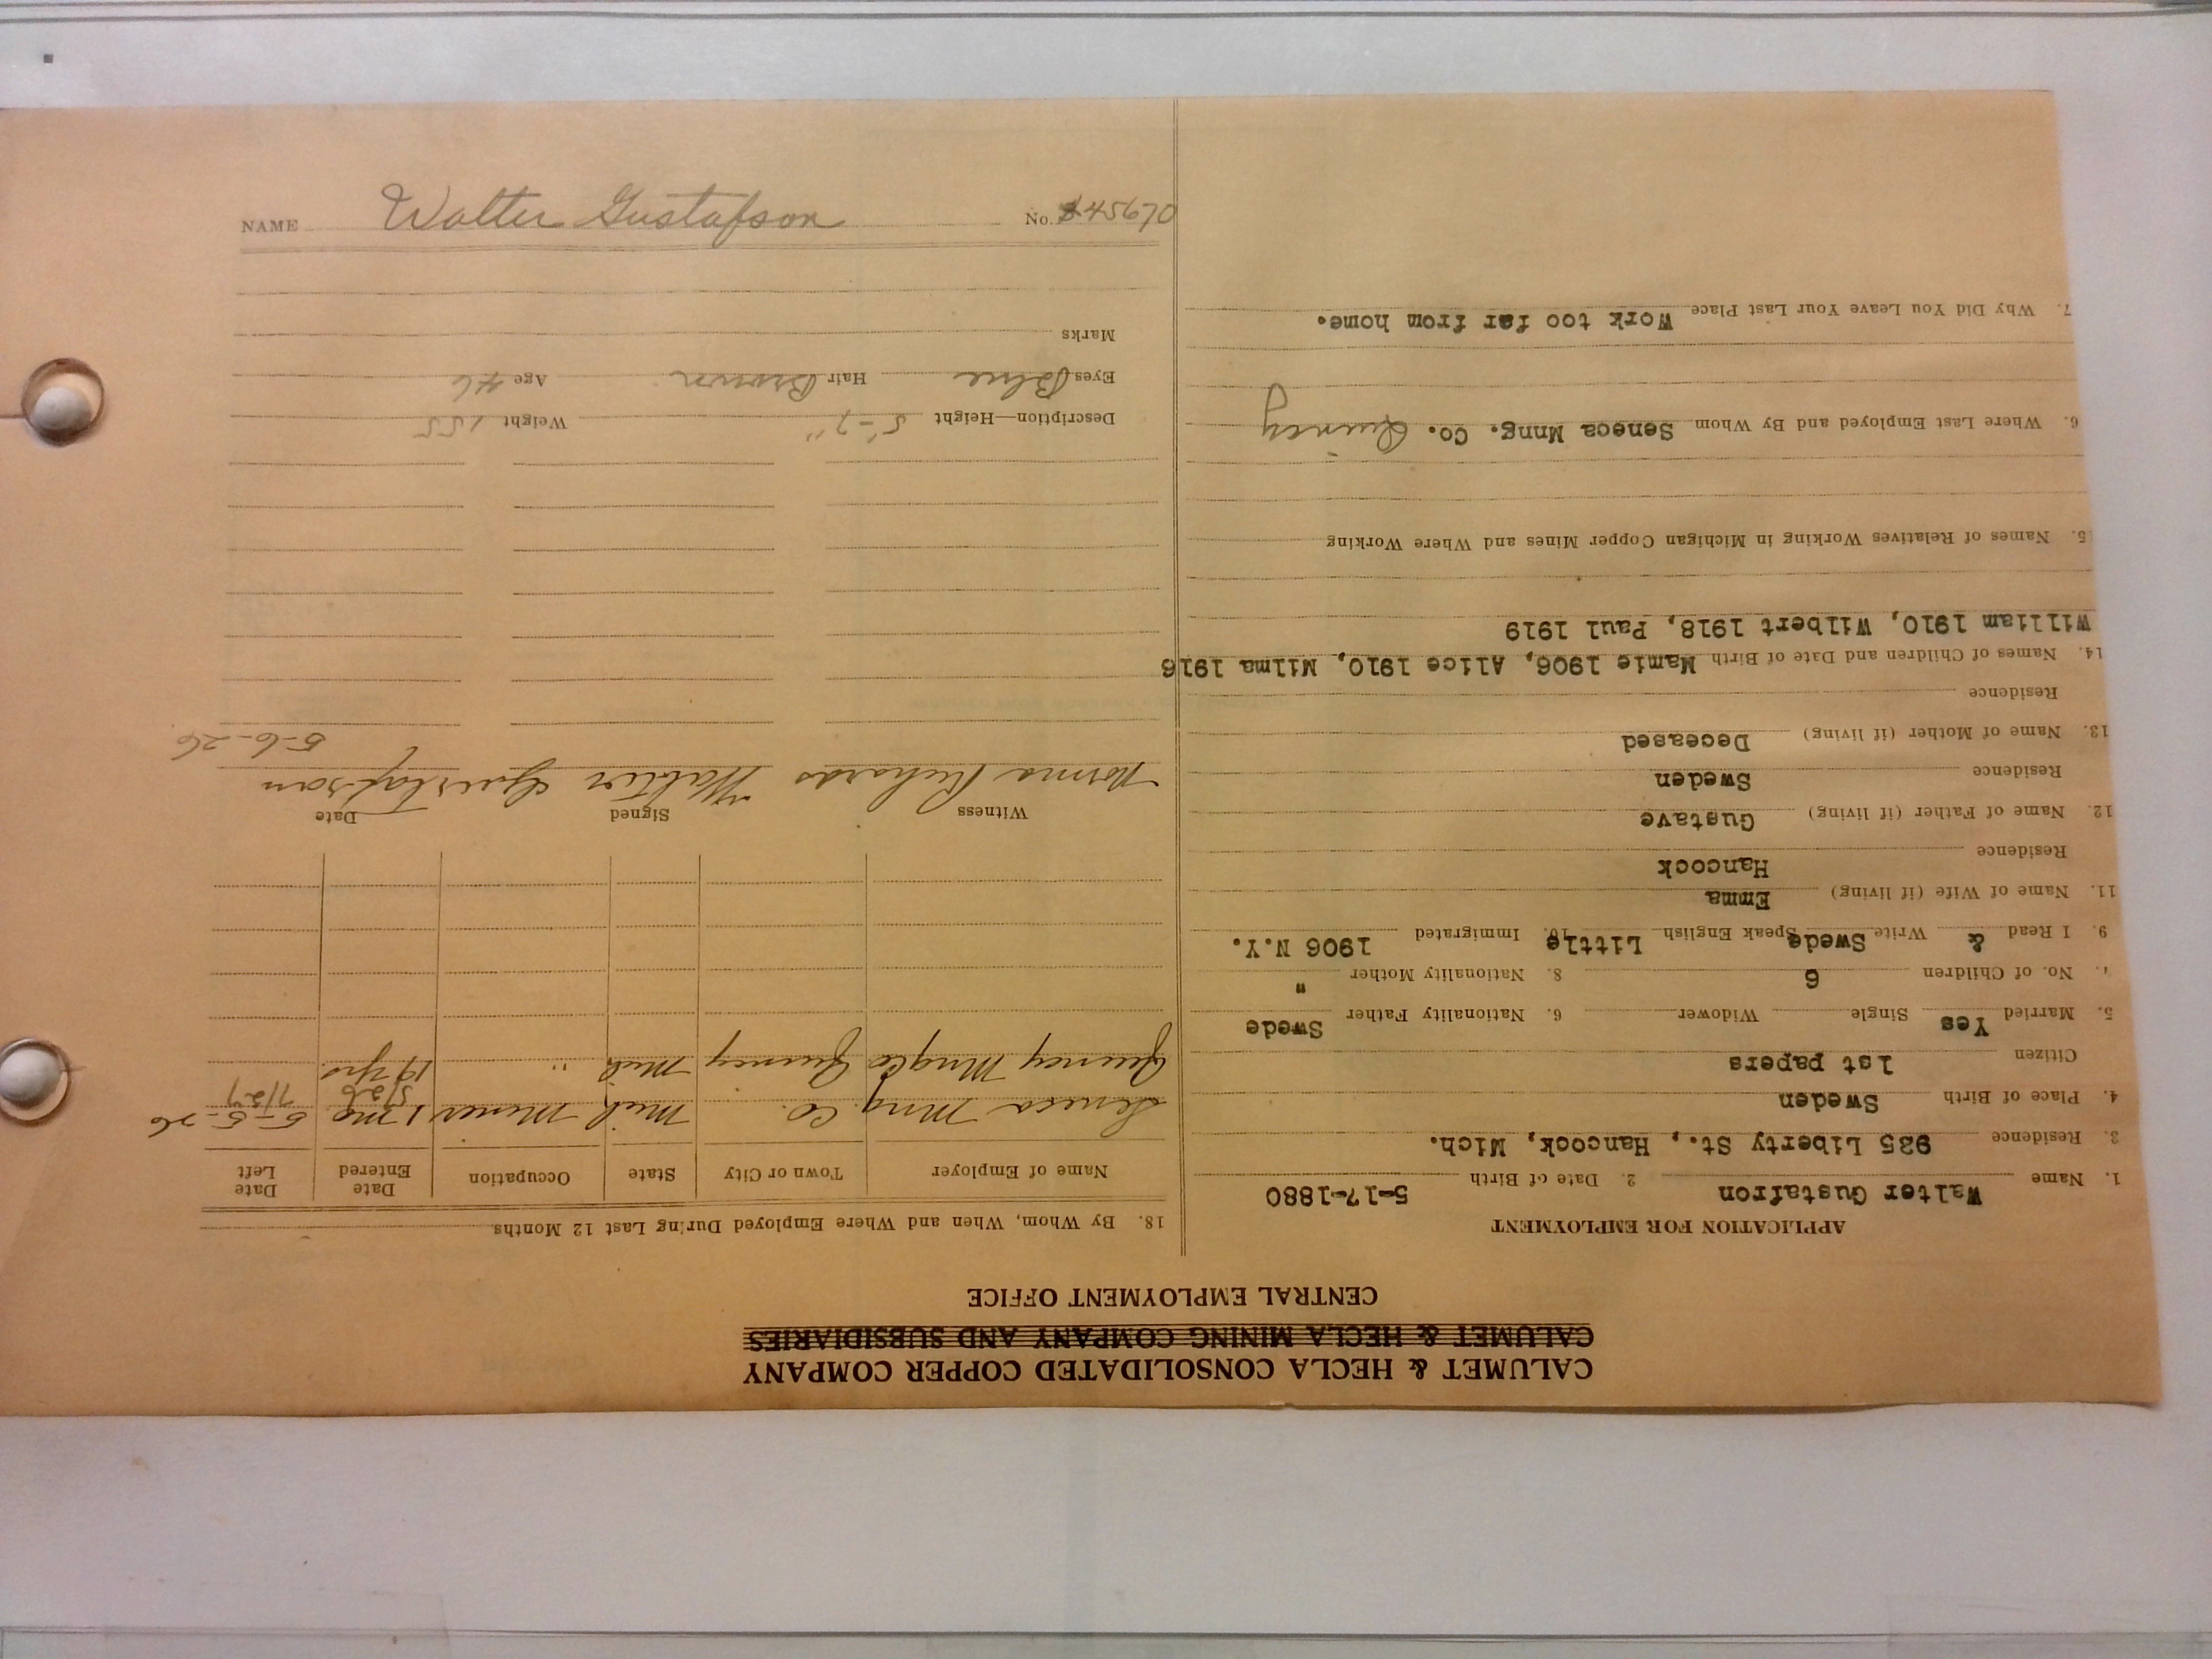 CALUMET & HECLA CONSOLIDATED COPPER COMPANY
CALUMET & HECLA MINING COMPANY AND SUBSIDIARIES
CENTRAL EMPLOYMENT OFFICE
APPLICATION FOR EMPLOYMENT
1. Name Walter Gustafron 2. Date of Birth 5-17-1880
3. Residence 925 Liberty St., Hancock, Mich.
4. Place of Birth Sweden
Citizen 1st papers
5. Married Yes Single Widower 6. Nationality Father Swede
7. No. of Children 6 8. Nationality Mother "
9. I Read & Write Swede Speak English Little 10. Immigrated 1906 N.Y.
11. Name of Wife (if living) Emma
Residence Hancock
12. Name of Father (if living) Gustave
Residence Sweden
13. Name of Mother (if living) Deceased
Residence
14. Names of Children and Date of Birth Mamie 1906, Alice 1910, Wilma 1916
William 1910, Wilbert 1918, Paul 1919
15. Names of Relatives Working in Michigan Copper Mines and Where Working
6. Where Last Employed and By Whom Seneca Mnng. Co. Quincy
7. Why Did You Leave Your Last Place Work too far from home.
18. By Whom, When and Where Employed During Last 12 Months
Name of Employer Town or City State Occupation Date Entered Date Left
Seneca Mng Co. Mich Miner 1 mo 5-5-26
5/26 7/27
Quincy Mng Co Quincy Mich " 19 yrs.
Witness Signed Date
Norma Richards Walter Gustafson 5-6-26
Description—Height 5'-7" Weight 155
Eyes Blue Hair Brown Age 46
Marks
NAME Walter Gustafson No. 45670